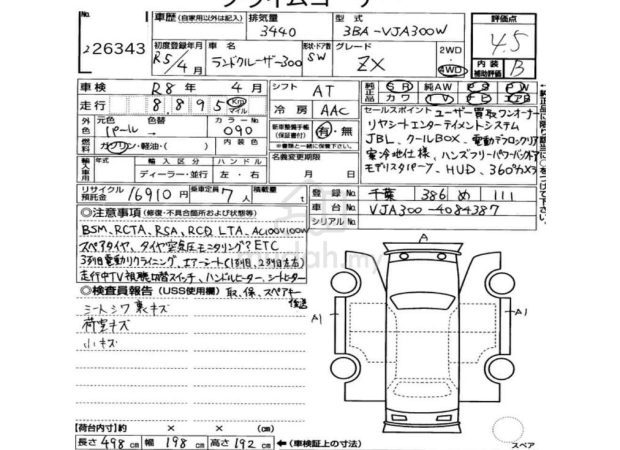 車歴 (自家用以外は記入) 排気量 型式 評価点
3440 3BA-VJA300W 4.5
26343
初度登録年月 車名 形状・ドア数 グレード 2WD
R5/4月 ランドクルーザー300 SW ZX 4WD
内装補助評価 B
車検 R8年4月 シフト AT 純正品 SR 純AW PS PW
走行 8.895 km マイル 冷房 AAC カワ TV
外色 元色 色替 カラーNo
パール → 090
新車整備手帳 (保証書付) 有・無
※書類と一緒に保管して下さい。
燃料 ガソリン・軽油・( )
輸入車用 年式 輸入区分 ハンドル
ディーラー・並行 左・右
名義変更期限 月 日
セールスポイント ユーザー買取ワンオーナー
リヤシートエンターテイメントシステム
JBL、クールBOX、電動デフロックリア
寒冷地仕様、ハンズフリーパワーバックドア
モデリスタパーツ、HUD、360°カメラ
リサイクル預託金 16910円 乗車定員 7人 積載量 t
登録No 千葉 386 め 111
車台No VJA300-4084387
シリアルNo
◎注意事項 (修復・不具合箇所および状態等)
BSM、RCTA、RSA、RCD LTA、AC100V100W
スペアタイヤ、タイヤ空気圧モニタリング? ETC
3列目電動リクライニング、エアーシート(1列目、2列目左右)
走行中TV視聴切替スイッチ、ハンドルヒーター、シートヒーター
◎検査員報告 (USS使用欄) 取、保、スペアキー
後送
シートシワ裏キズ
荷室キズ
小キズ
A
A1
A1
【荷台内寸】約 × × (cm)
長さ 498 cm 幅 198 cm 高さ 192 cm ←(車検証上の寸法)
スペア